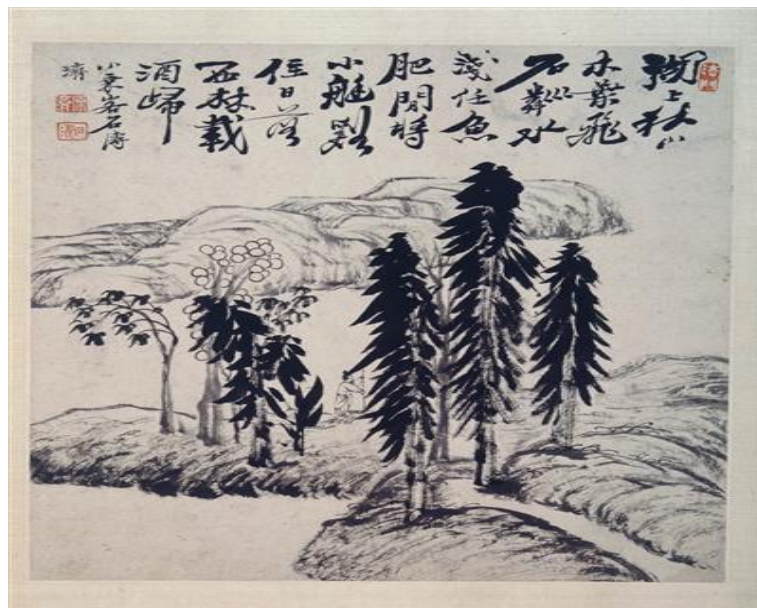 湖上秋山
木葉飛
石水
淺任魚
肥閒將
小艇
日落
西林載
酒歸
小乘客石濤
濟